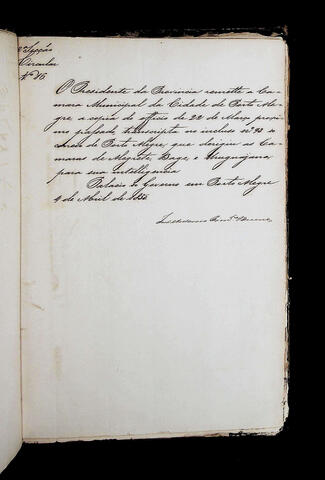 Secção
Circular
Nº 16
O Presidente da Provincia remette a Ca-
mara Municipal da Cidade de Porto Ale-
gre a copia do officio de 22 de Março proxi-
mo passado transcripta no incluso nº 93 o
Correio de Porto Alegre, que dirigiu as Ca-
maras de Alegrete, Bagé, e Uruguayana,
para sua intelligencia
Palacio do Governo em Porto Alegre
4 de Abril de